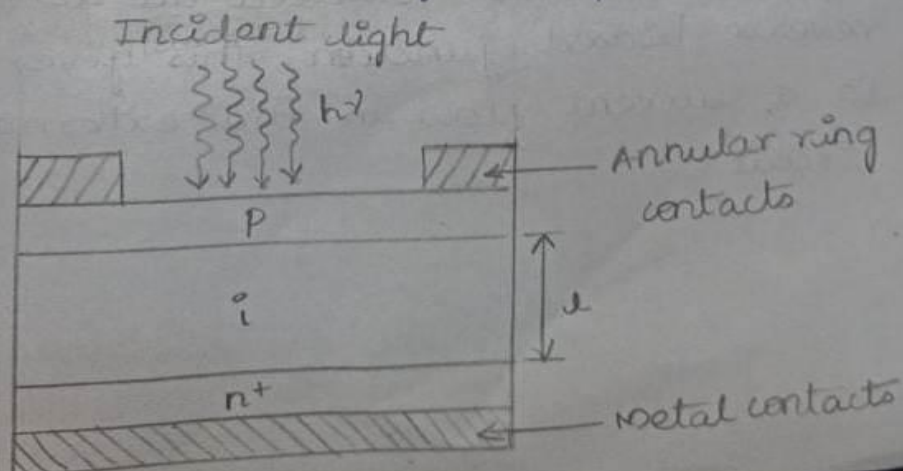 Incident light
hν
Annular ring
contacts
P
i
l
n+
Metal contacts